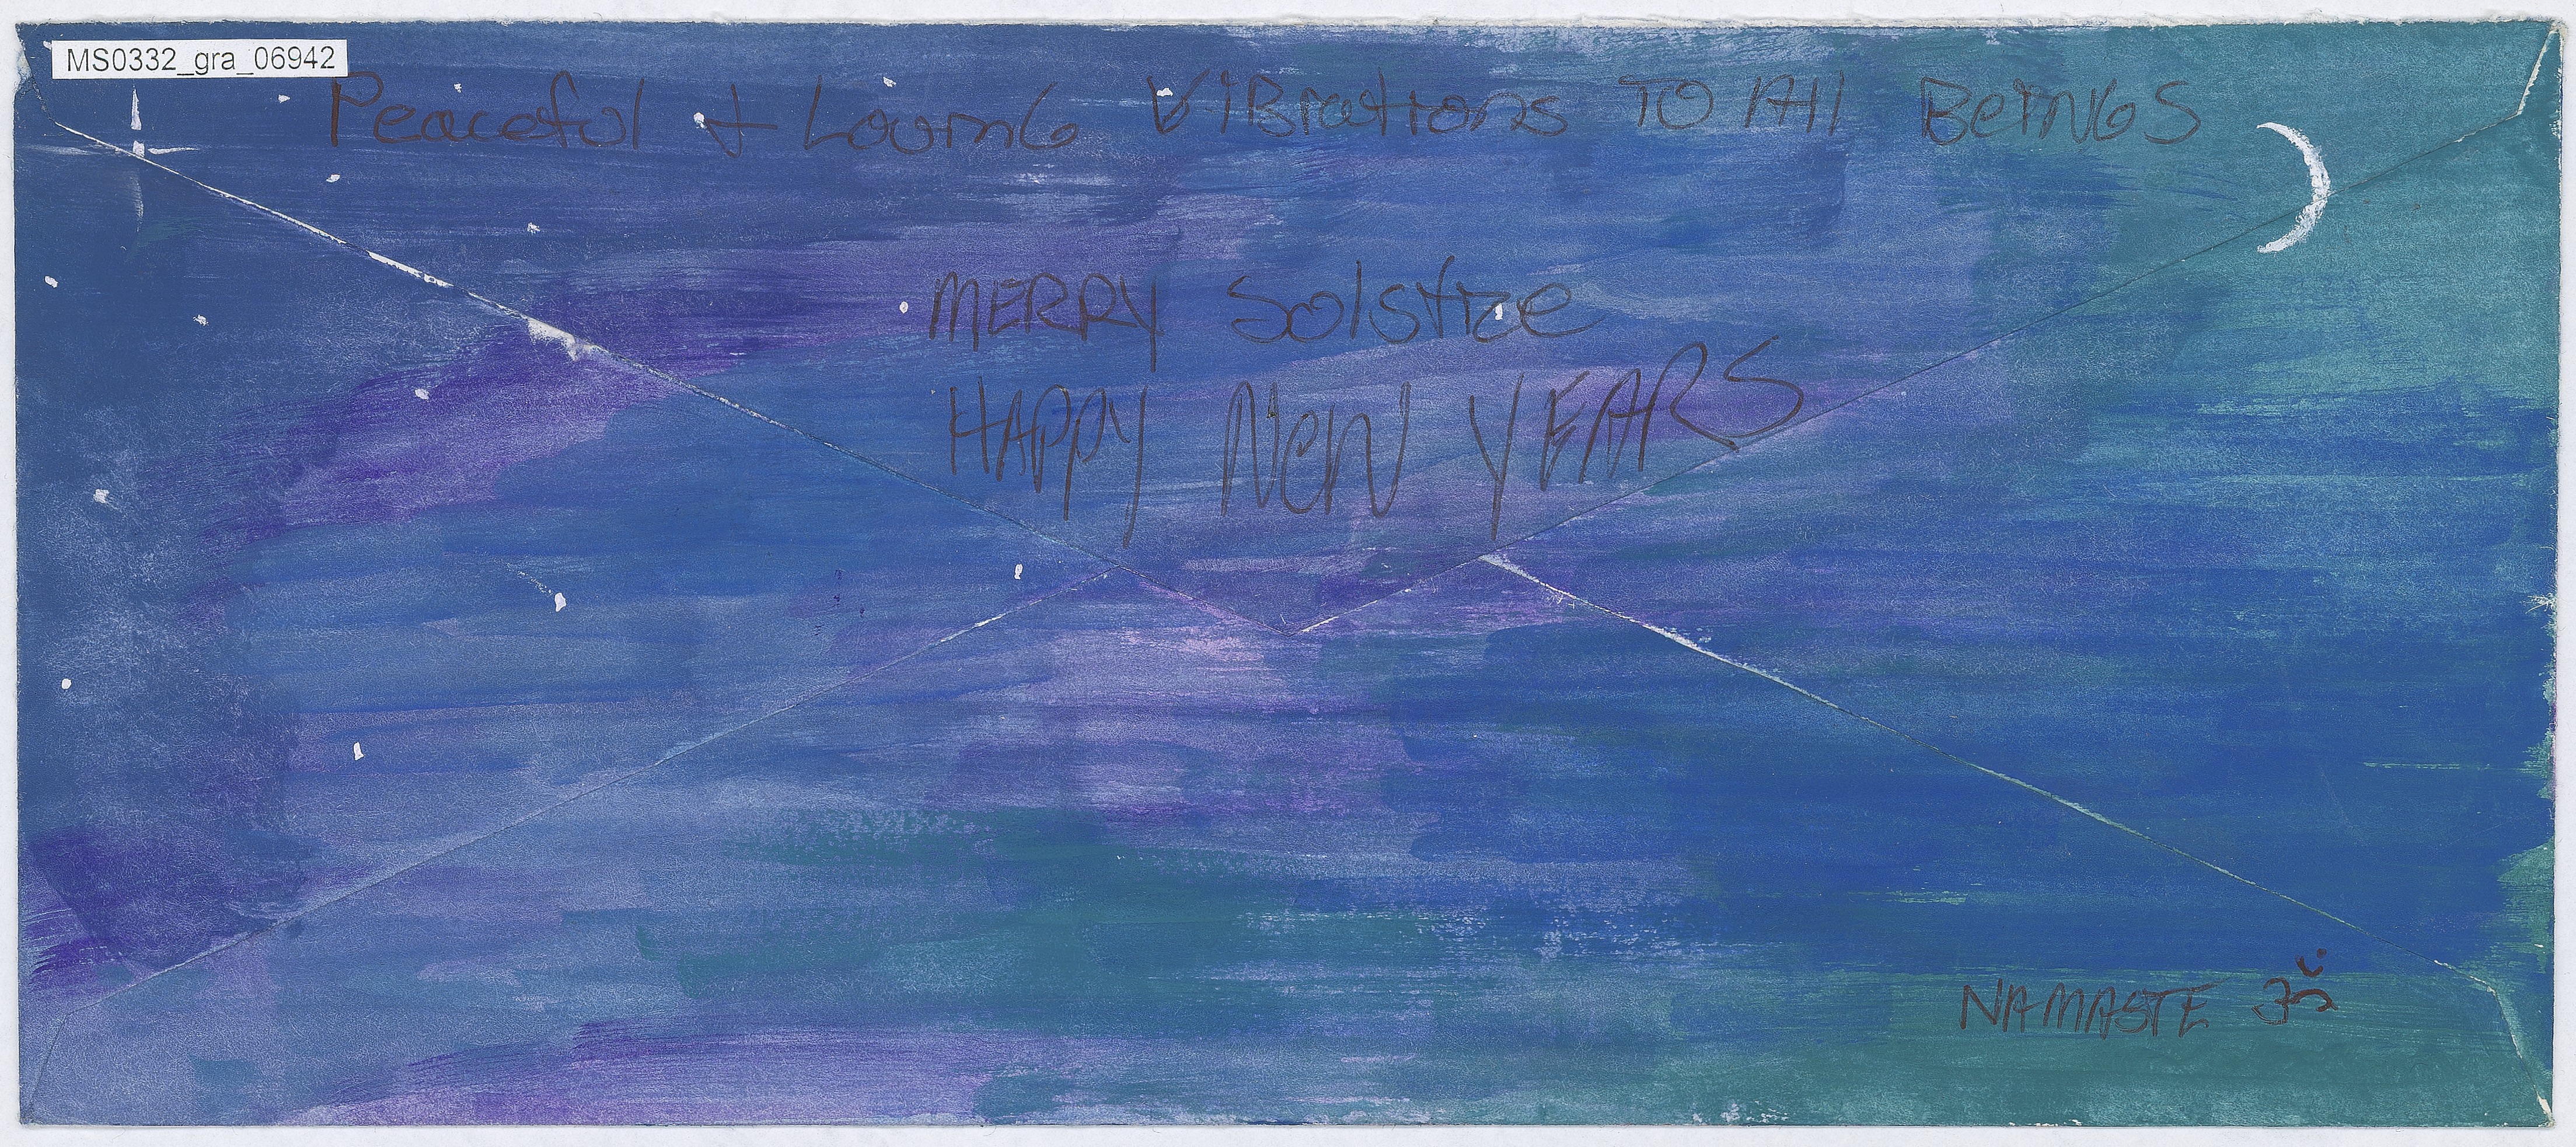 MS0332_gra_06942
Peaceful & Loving Vibrations To All Beings
MERRY Solstice
HAPPY NeW YEARS
NAMASTE ॐ